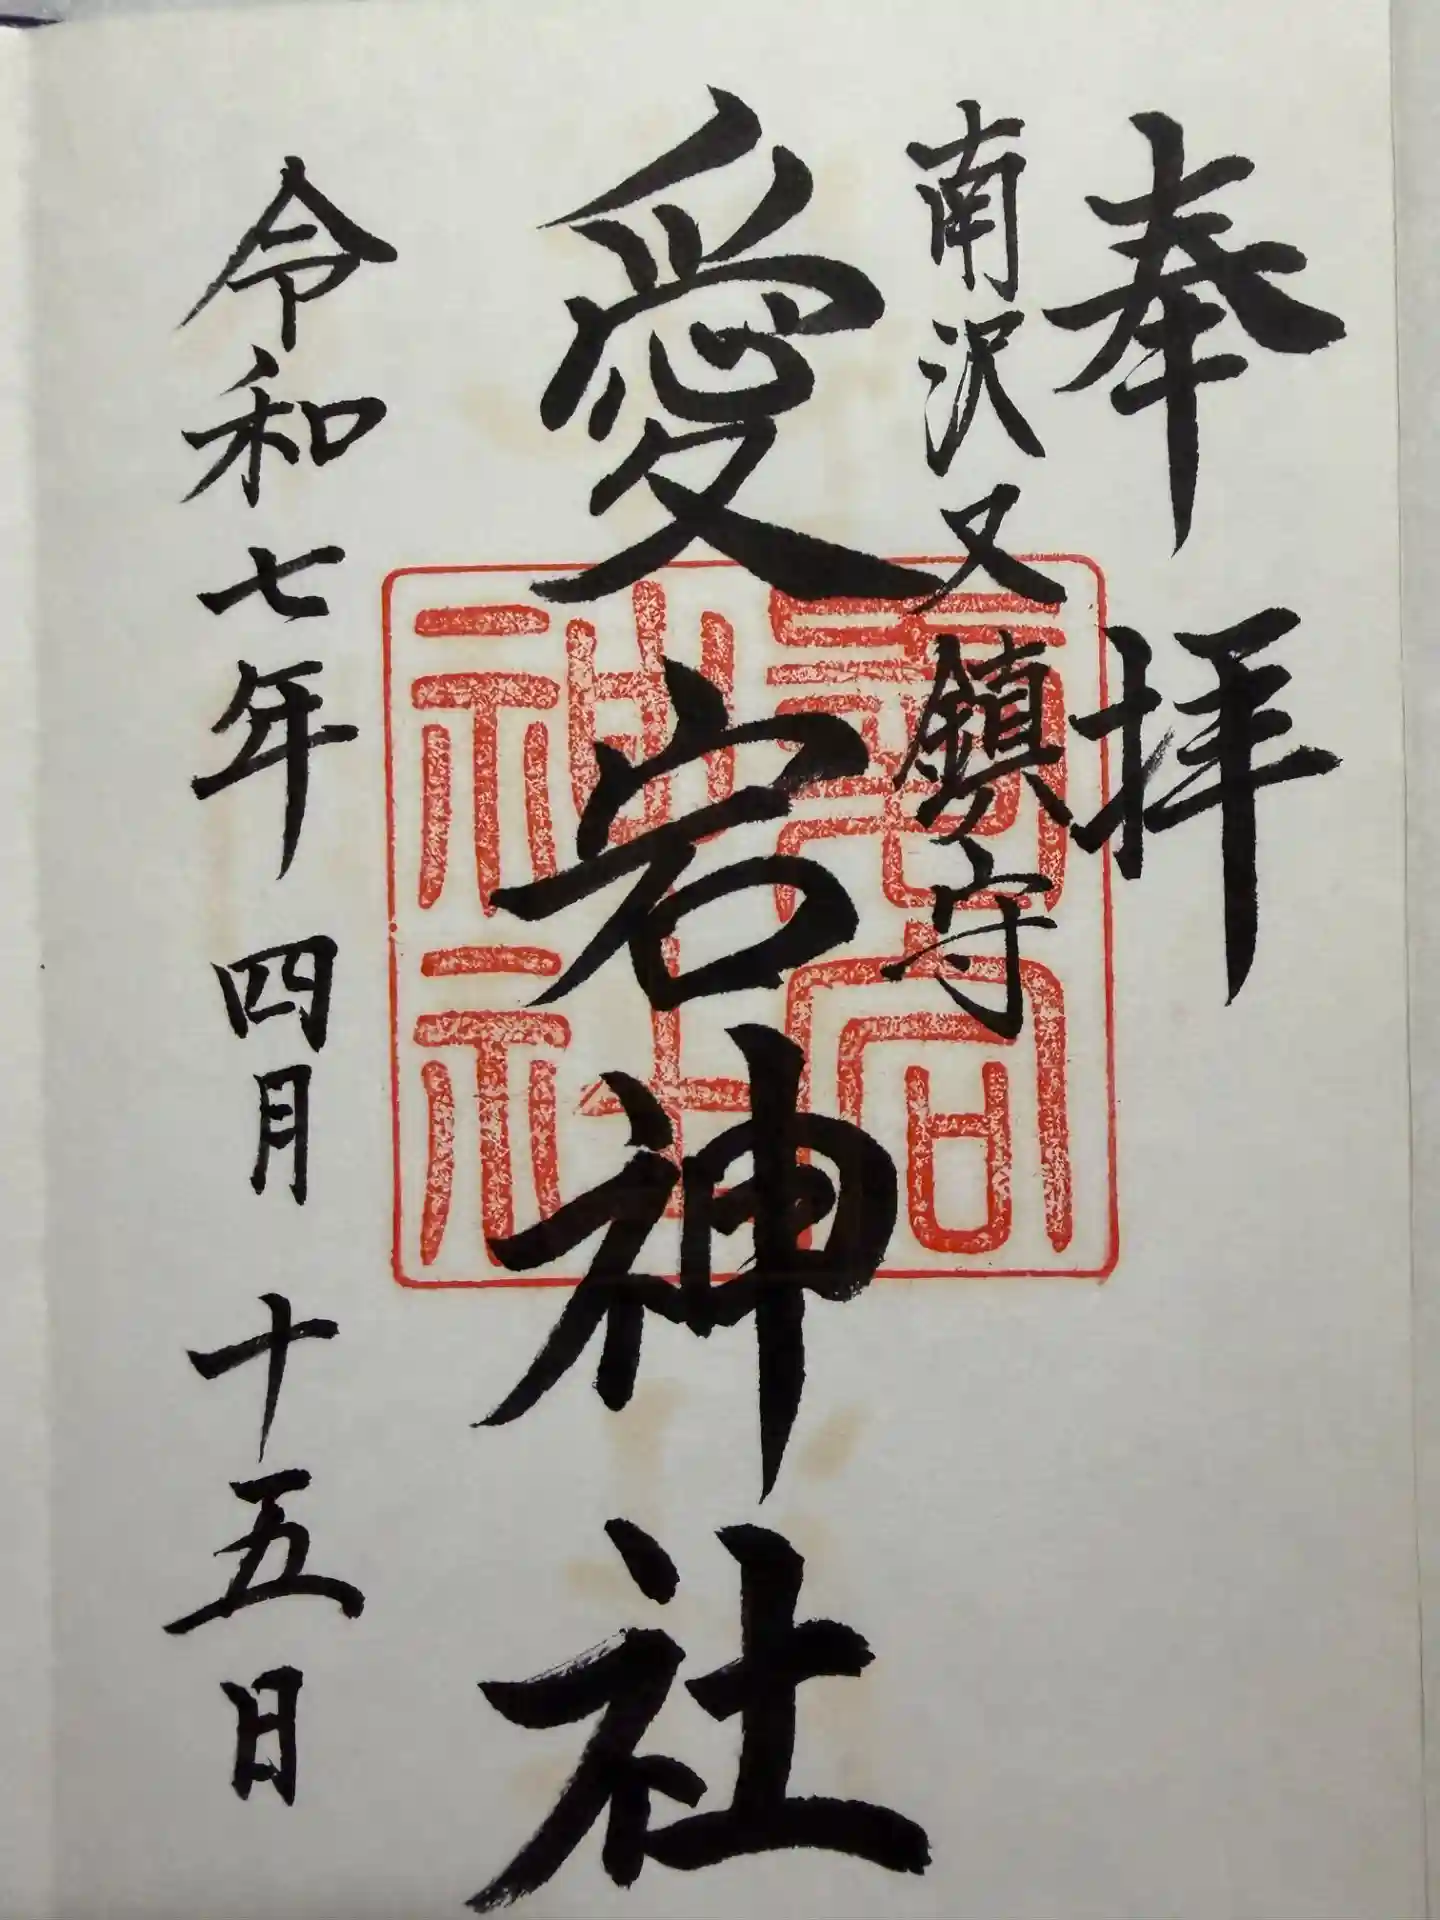 奉拝
南沢又鎮守
愛宕神社
神社
令和七年四月十五日